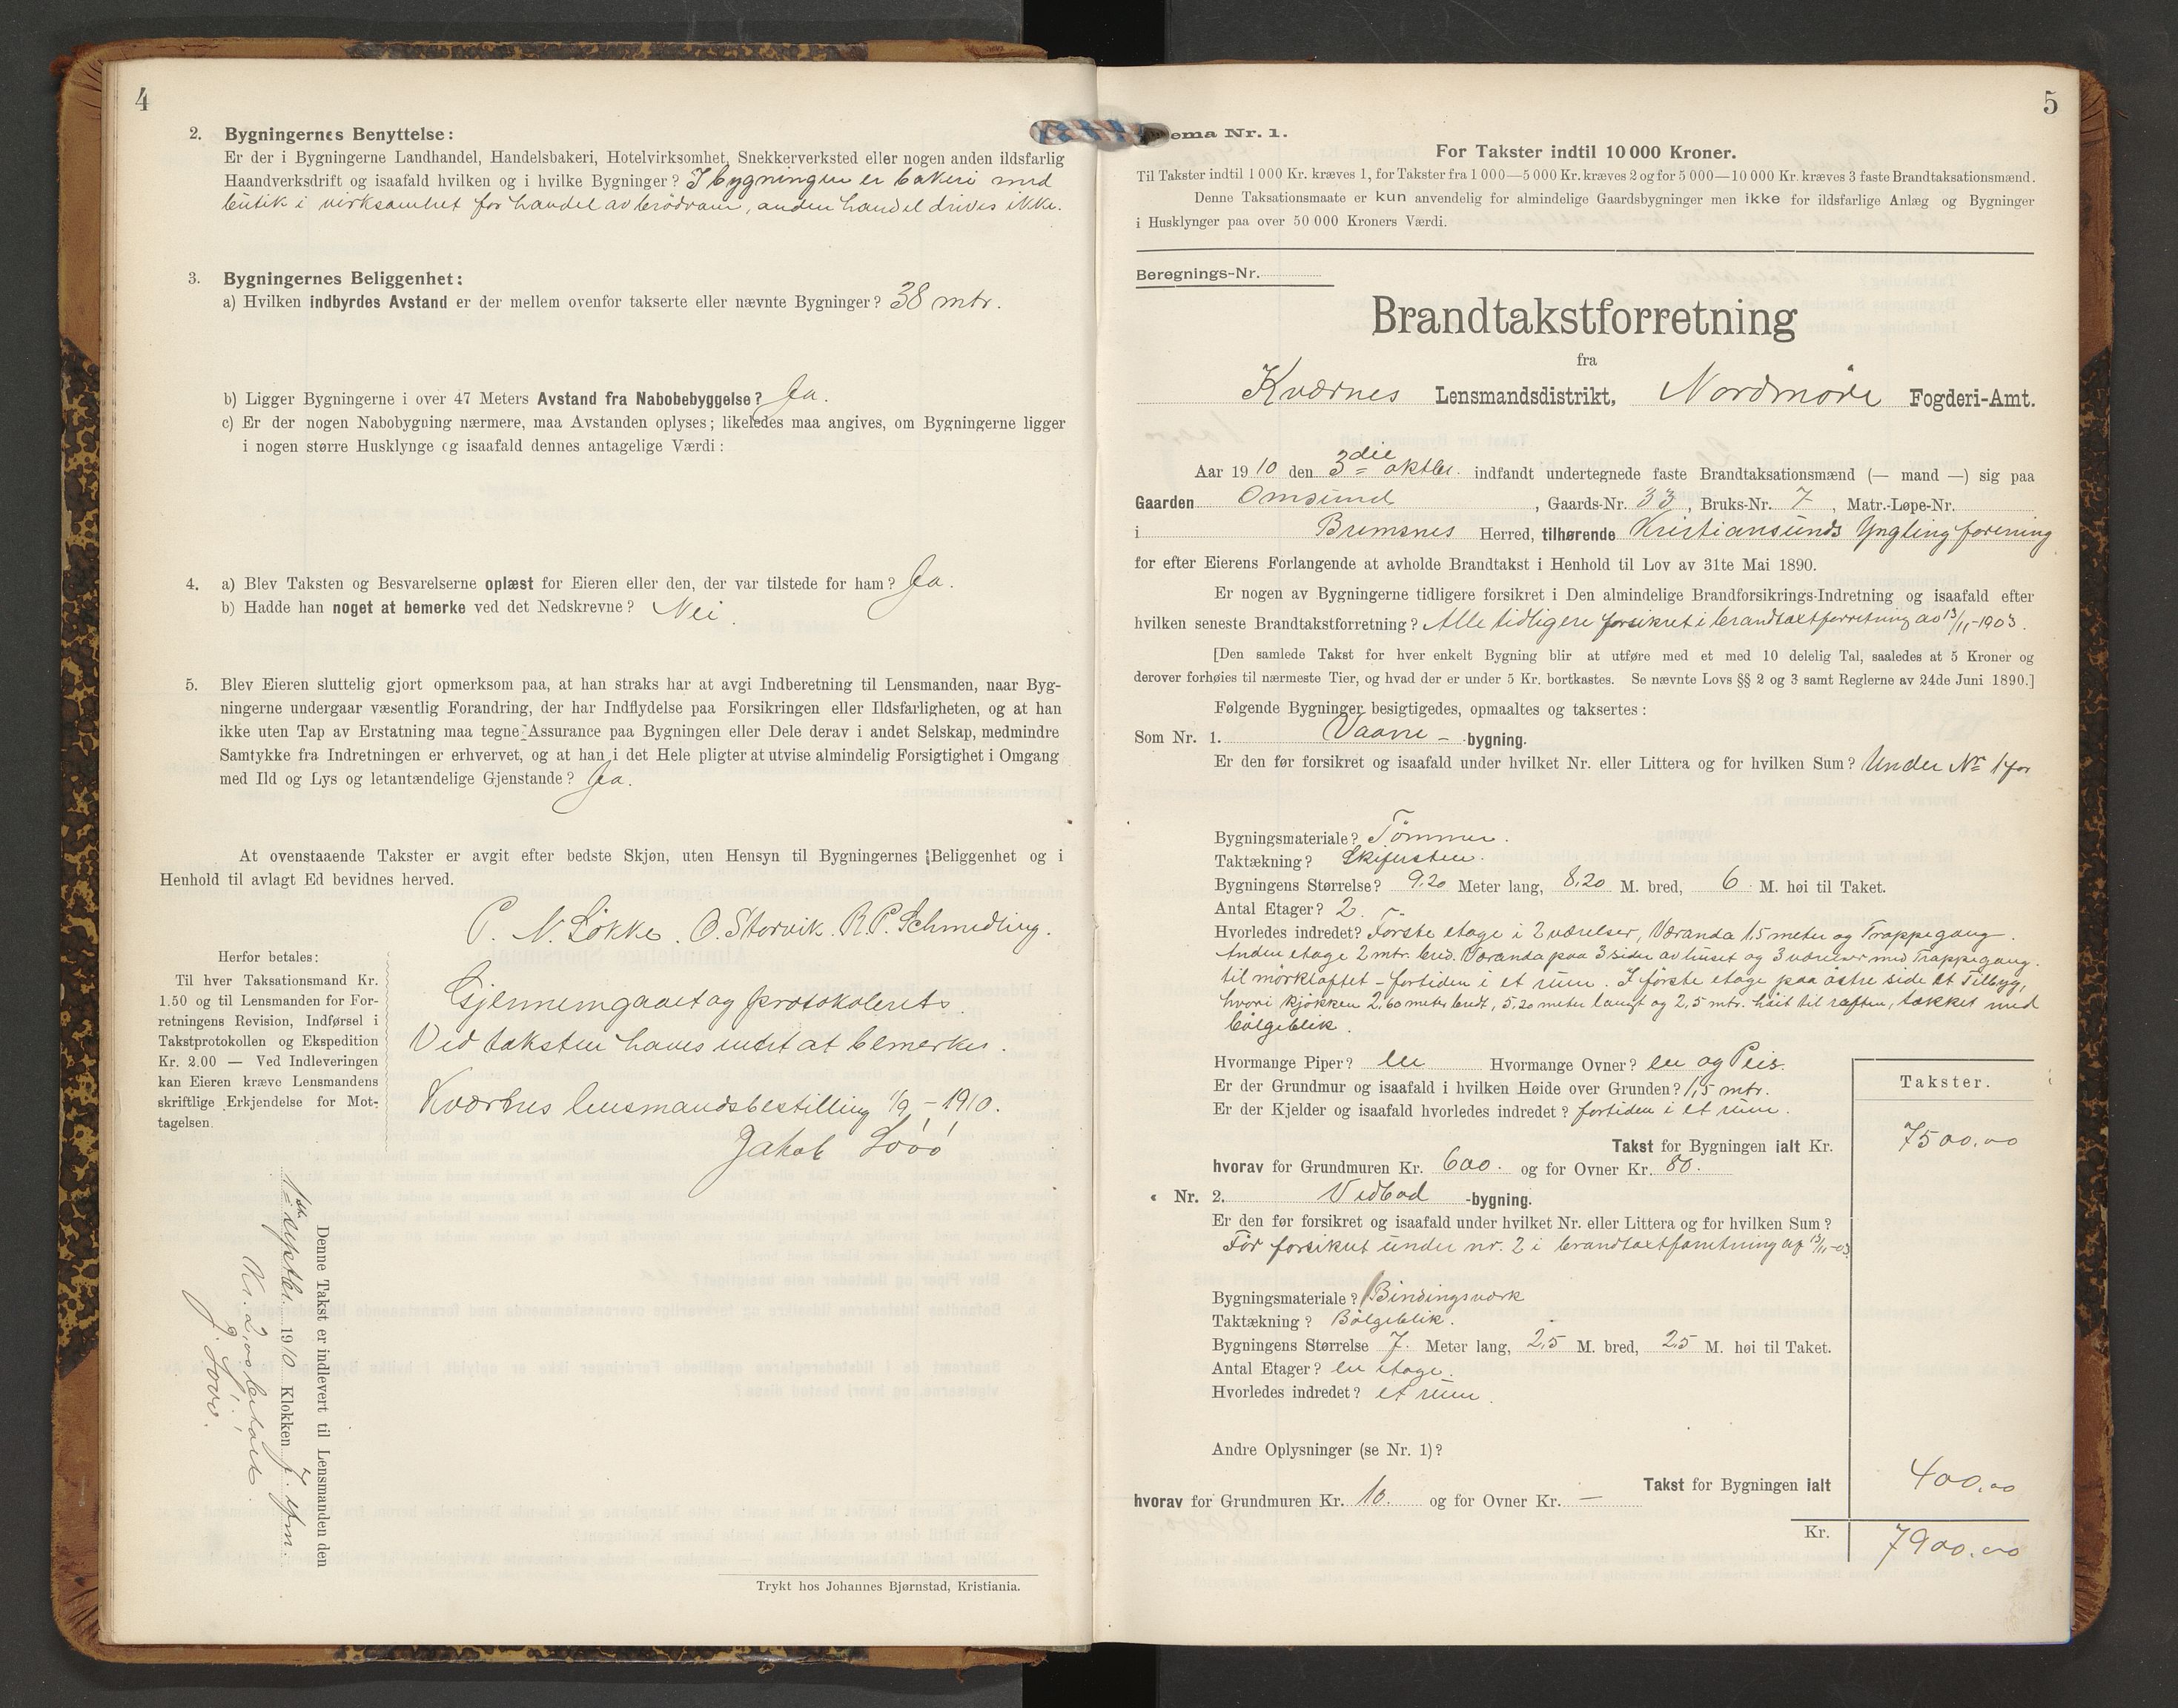 4
2. Bygningernes Benyttelse:
Er der i Bygningerne Landhandel, Handelsbakeri, Hotelvirksomhet, Snekkerverksted eller nogen anden ildsfarlig
Haandverksdrift og isaafald hvilken og i hvilke Bygninger? I bygningen er bakeri med
butik i virksamhet for handel av brödvarer, anden handel drives ikke.
3. Bygningernes Beliggenhet:
a) Hvilken indbyrdes Avstand er der mellem ovenfor takserte eller nævnte Bygninger? 38 mtr.
b) Ligger Bygningerne i over 47 Meters Avstand fra Nabobebyggelse? Ja.
c) Er der nogen Nabobygning nærmere, maa Avstanden oplyses; likeledes maa angives, om Bygningerne ligger
i nogen større Husklynge og isaafald dennes antagelige Værdi:
4. a) Blev Taksten og Besvarelserne oplæst for Eieren eller den, der var tilstede for ham? Ja.
b) Hadde han noget at bemerke ved det Nedskrevne? Nei.
5. Blev Eieren sluttelig gjort opmerksom paa, at han straks har at avgi Indberetning til Lensmanden, naar Byg-
ningerne undergaar væsentlig Forandring, der har Indflydelse paa Forsikringen eller Ildsfarligheten, og at han
ikke uten Tap av Erstatning maa tegne Assurance paa Bygningen eller Dele derav i andet Selskap, medmindre
Samtykke fra Indretningen er erhvervet, og at han i det Hele pligter at utvise almindelig Forsigtighet i Omgang
med Ild og Lys og letantændelige Gjenstande? Ja.
At ovenstaaende Takster er avgit efter bedste Skjøn, uten Hensyn til Bygningernes Beliggenhet og i
Henhold til avlagt Ed bevidnes herved.
P. N. Løkke. O. Storvik. R. P. Schmedling.
Herfor betales:
Til hver Taksationsmand Kr.
1.50 og til Lensmanden for For-
retningens Revision, Indførsel i
Takstprotokollen og Ekspedition
Kr. 2.00 — Ved Indleveringen
kan Eieren kræve Lensmandens
skriftlige Erkjendelse for Mot-
tagelsen.
Gjennemgaaet og protokoleret.
Ved taksten haves intet at bemerke.
Kværnes lensmandsbestilling 1/9 - 1910.
Jakob Lööö
Denne Takst er indlevert til Lensmanden den
1ste septbr. 1910 Klokken 7 efm.
Kr. 2,00 betalt.
J. Lööö.
Trykt hos Johannes Bjørnstad, Kristiania.
5
ema Nr. 1.
For Takster indtil 10 000 Kroner.
Til Takster indtil 1 000 Kr. kræves 1, for Takster fra 1 000—5 000 Kr. kræves 2 og for 5 000—10 000 Kr. kræves 3 faste Brandtaksationsmænd.
Denne Taksationsmaate er kun anvendelig for almindelige Gaardsbygninger men ikke for ildsfarlige Anlæg og Bygninger
i Husklynger paa over 50 000 Kroners Værdi.
Beregnings-Nr.
Brandtakstforretning
fra
Kværnes Lensmandsdistrikt, Nordmöre Fogderi-Amt.
Aar 1910 den 3die oktbr. indfandt undertegnede faste Brandtaksationsmænd (— mand —) sig paa
Gaarden Omsund, Gaards-Nr. 33, Bruks-Nr. 7, Matr.-Løpe-Nr.
i Bremsnes Herred, tilhørende Kristiansunds Yngling forening
for efter Eierens Forlangende at avholde Brandtakst i Henhold til Lov av 31te Mai 1890.
Er nogen av Bygningerne tidligere forsikret i Den almindelige Brandforsikrings-Indretning og isaafald efter
hvilken seneste Brandtakstforretning? Alle tidligere forsikret i brandtaxtforretning av 13/11-1903.
[Den samlede Takst for hver enkelt Bygning blir at utføre med et med 10 delelig Tal, saaledes at 5 Kroner og
derover forhøies til nærmeste Tier, og hvad der er under 5 Kr. bortkastes. Se nævnte Lovs §§ 2 og 3 samt Reglerne av 24de Juni 1890.]
Følgende Bygninger besigtigedes, opmaaltes og taksertes:
Som Nr. 1. Vaane - bygning.
Er den før forsikret og isaafald under hvilket Nr. eller Littera og for hvilken Sum? Under Nr 1 for
Bygningsmateriale? Tömmer.
Taktækning? Skifersten.
Bygningens Størrelse? 9,20 Meter lang, 8,20 M. bred, 6 M. høi til Taket.
Antal Etager? 2.
Hvorledes indredet? Förste etage i 2 værelser, Veranda 1,5 meter og Trappegang.
Anden etage 2 mtr. bred. Veranda paa 3 sider av huset og 3 værelser med Trappegang
til mörkloftet - fortiden i et rum. I förste etage paa östre side et Tilbyg,
hvori kjökken 2,60 meter bredt, 5,20 meter langt og 2,5 mtr. höit til raften, tækket med
bölgeblik.
Hvormange Piper? en Hvormange Ovner? en og Peis.
Er der Grundmur og isaafald i hvilken Høide over Grunden? 1,5 mtr.
Er der Kjelder og isaafald hvorledes indredet? fortiden i et rum.
Takster.
Takst for Bygningen ialt Kr. 7500.00
hvorav for Grundmuren Kr. 600. og for Ovner Kr. 80.
Nr. 2. Vedbod -bygning.
Er den før forsikret og isaafald under hvilket Nr. eller Littera og for hvilken Sum?
För forsikret under nr. 2 i brandtaxtforretning af 13/11-03.
Bygningsmateriale? Bindingsværk
Taktækning? Bölgeblik.
Bygningens Størrelse 7. Meter lang, 2,5 M. bred, 2,5 M. høi til Taket.
Antal Etager? en etage.
Hvorledes indredet? et rum.
Andre Oplysninger (se Nr. 1)?
Takst for Bygningen ialt 400.00
hvorav for Grundmuren Kr. 10. og for Ovner Kr. —
Kr. 7900.00